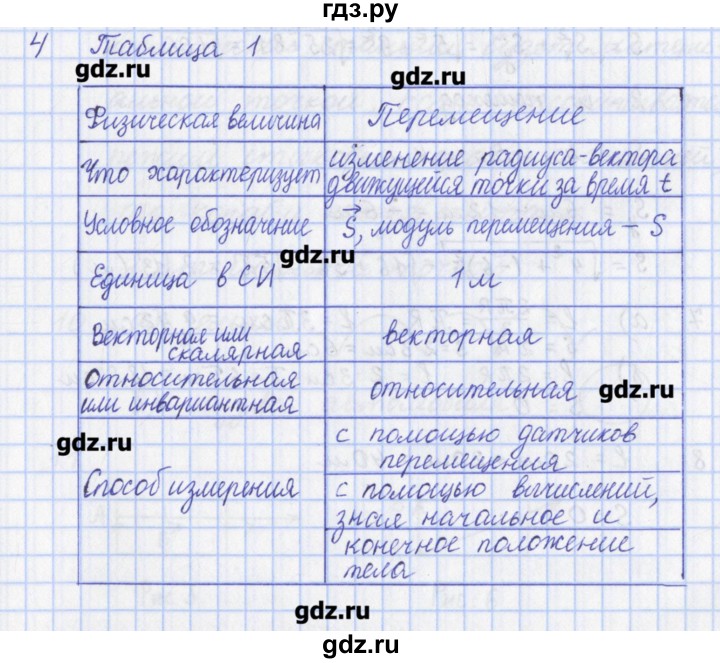 гдз.ру
4 Таблица 1
gdz.ru
gdz.ru
Физическая величина Перемещение
Что характеризует изменение радиуса-вектора
движущейся точки за время t
Условное обозначение S⃗, модуль перемещения – S
gdz.ru
Единица в СИ 1 м
Векторная или
скалярная
векторная
Относительная
или инвариантная
относительная
gdz.ru
gdz.ru
Способ измерения
с помощью датчиков
перемещения
с помощью вычислений,
зная начальное и
конечное положение
тела
gdz.ru
gdz.ru